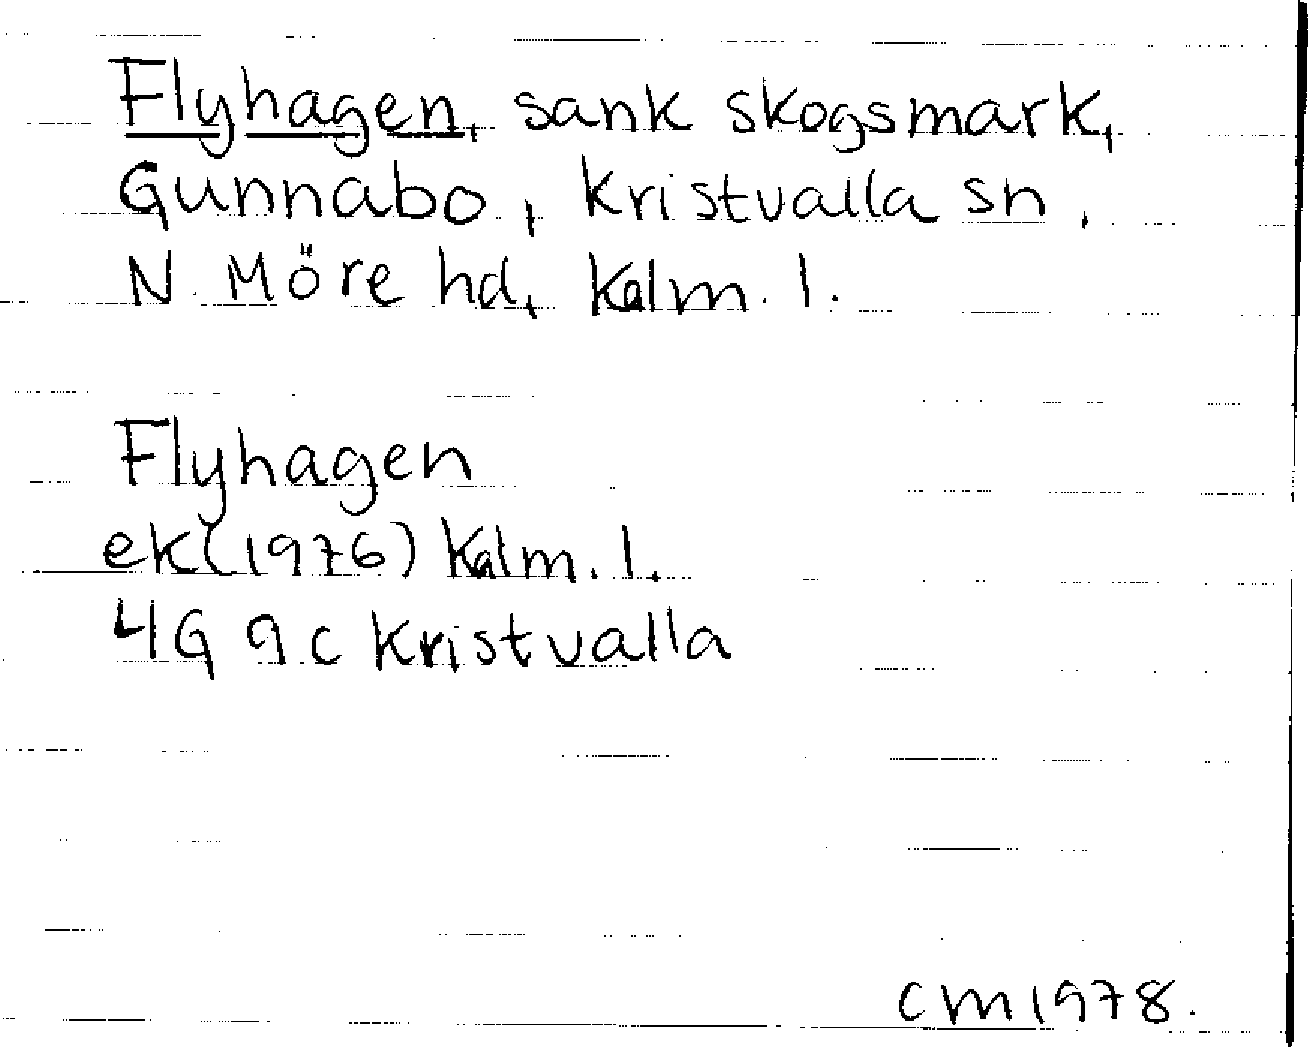 Flyhagen, sank skogsmark,
Gunnabo, Kristvalla sn.
N. Möre hd, Kalm. l.
Flyhagen
ek (1976) Kalm. l.
4G 9c Kristvalla
CM 1978.